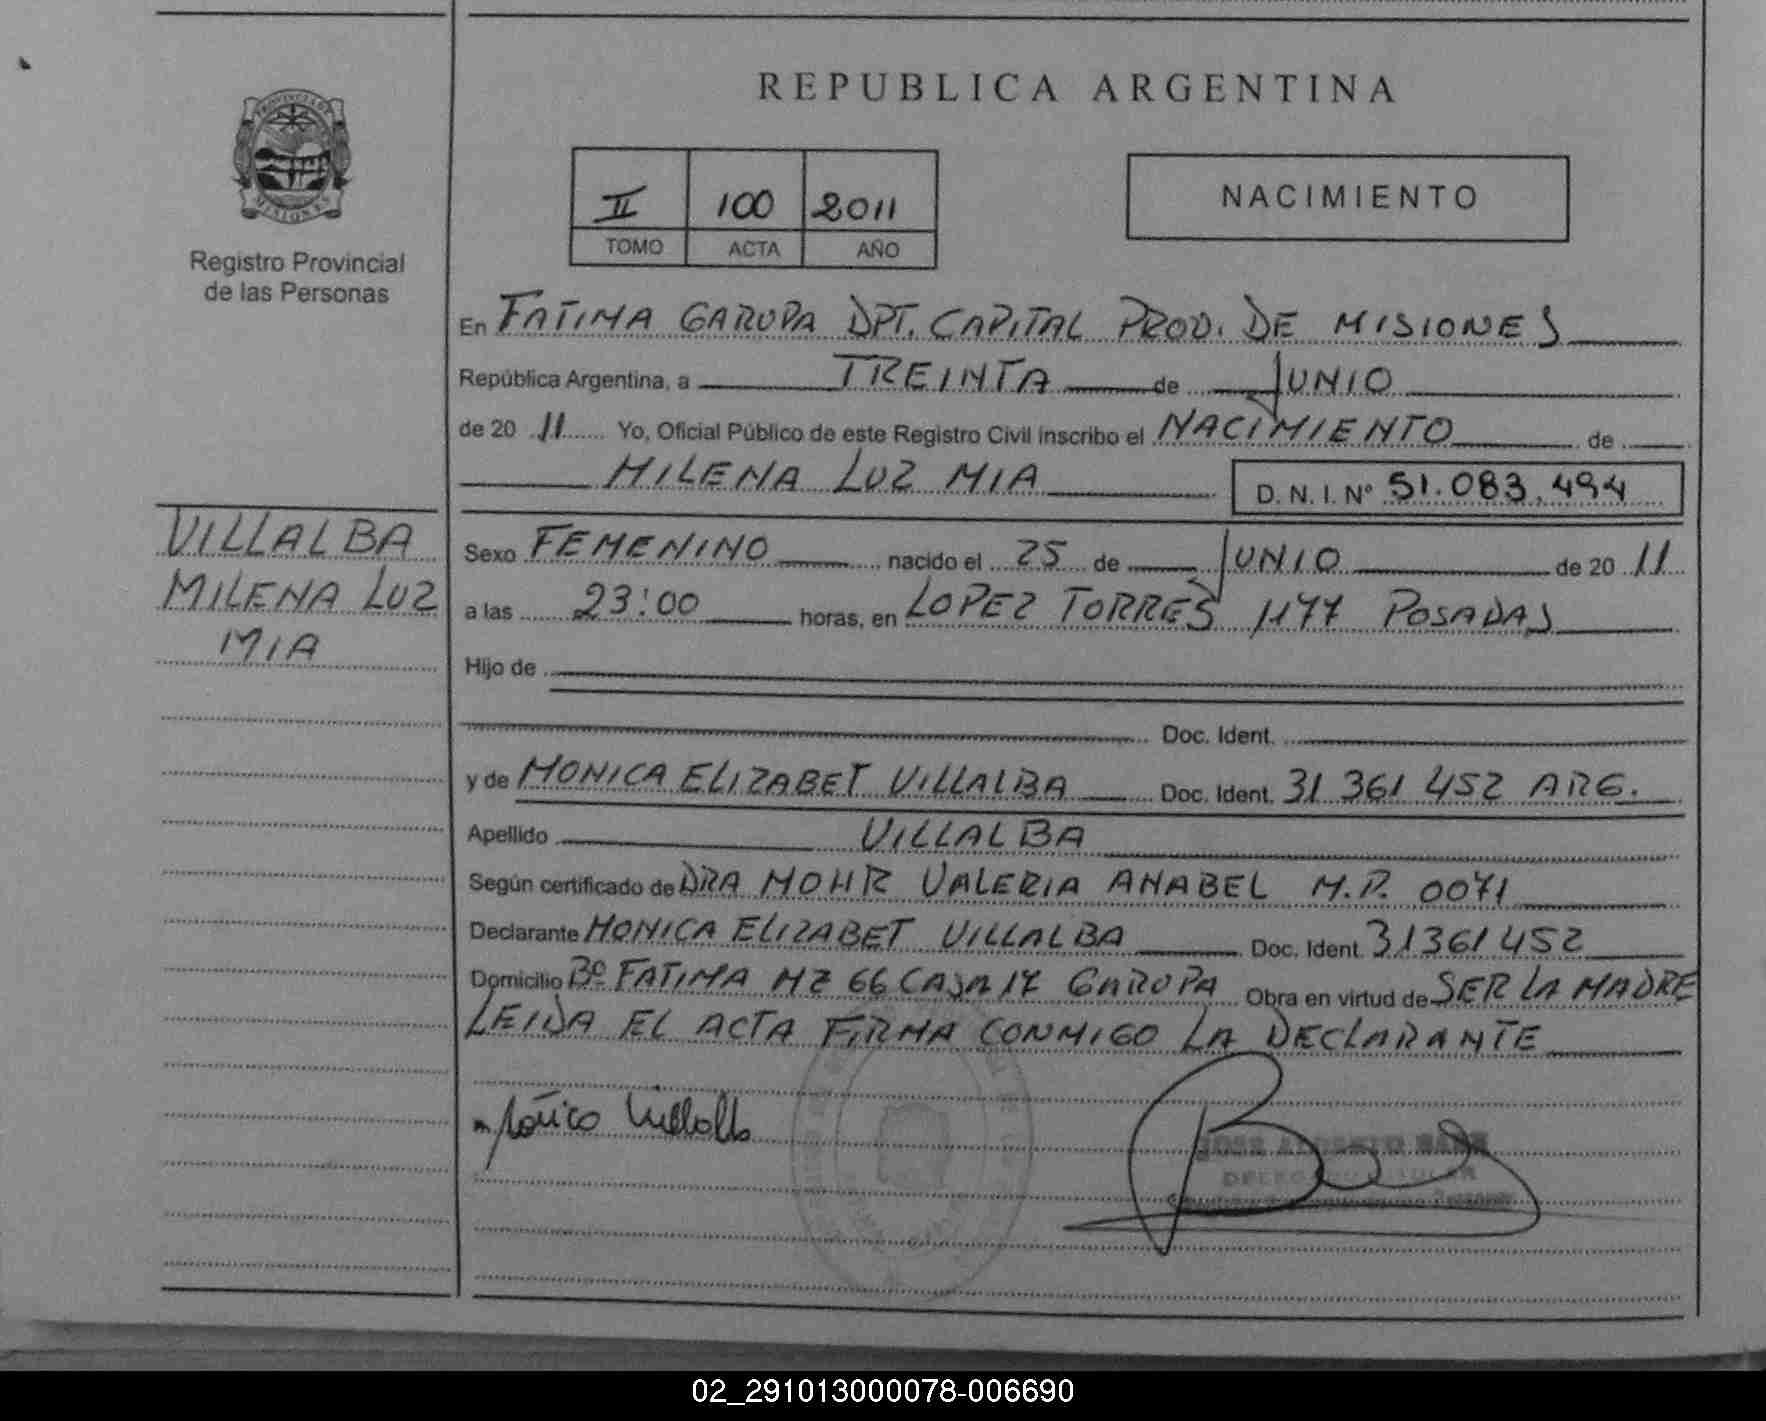 REPUBLICA ARGENTINA
PROVINCIA DE
MISIONES
Registro Provincial
de las Personas
II 100 2011
TOMO ACTA AÑO
NACIMIENTO
En FATIMA GARUPA DPT. CAPITAL PROV. DE MISIONES
República Argentina, a TREINTA de JUNIO
de 20 11 Yo, Oficial Público de este Registro Civil inscribo el NACIMIENTO de
MILENA LUZ MIA D. N. I. Nº 51.083.494
VILLALBA
MILENA LUZ
MIA
Sexo FEMENINO nacido el 25 de JUNIO de 20 11
a las 23:00 horas, en LOPEZ TORRES 1177 POSADAS
Hijo de
Doc. Ident.
y de MONICA ELIZABET VILLALBA Doc. Ident. 31 361 452 ARG.
Apellido VILLALBA
Según certificado de DRA MOHR VALERIA ANABEL M.P. 0071
Declarante MONICA ELIZABET VILLALBA Doc. Ident. 31361452
Domicilio Bº FATIMA MZ 66 CASA 17 GARUPA Obra en virtud de SER LA MADRE
LEIDA EL ACTA FIRMA CONMIGO LA DECLARANTE
Monica Villalba
02_291013000078-006690